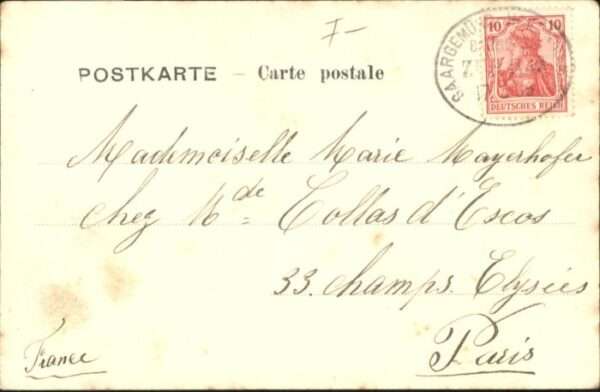 7-
POSTKARTE — Carte postale
SAARGEMÜ
ZUG
17
10 10
DEUTSCHES REICH
Mademoiselle Marie Mayerhofer
chez Mde Collas d'Escos
33. champs. Elysées
Paris
France